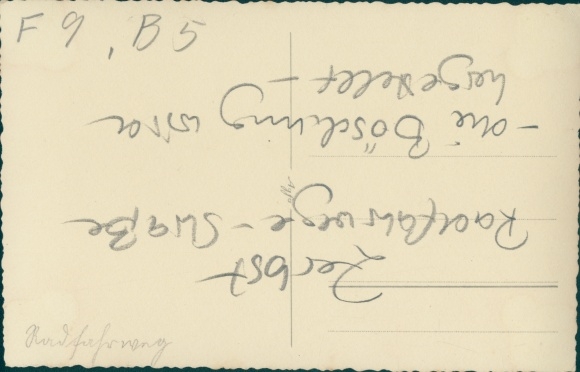 F 9, B 5
Zerbst
Radfahrwege - Straße
- die Böschung wird
hergestellt -
Radfahrweg